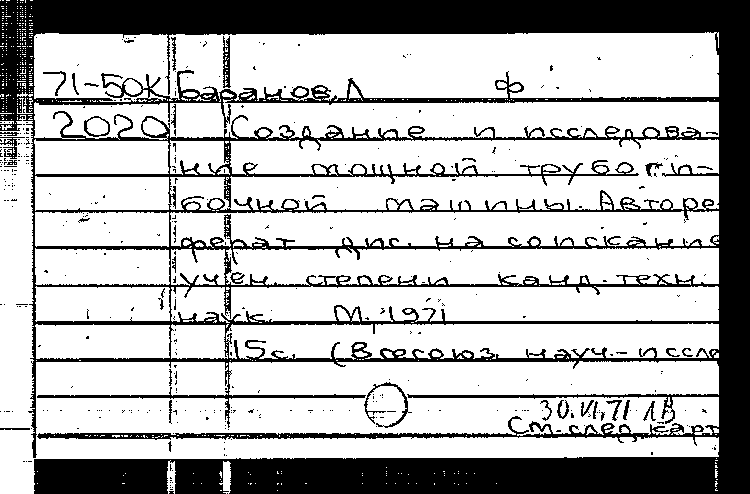 71-50К Баранов, Л ф
2020 Создание и исследова-
ние мощной трубоги-
бочной машины. Авторе
ферат дис. на соискание
учен. степени канд. техн.
наук. М., 1971
15с. (Всесоюз. науч.-иссле
30.VI.71 ЛВ
См. след. карт